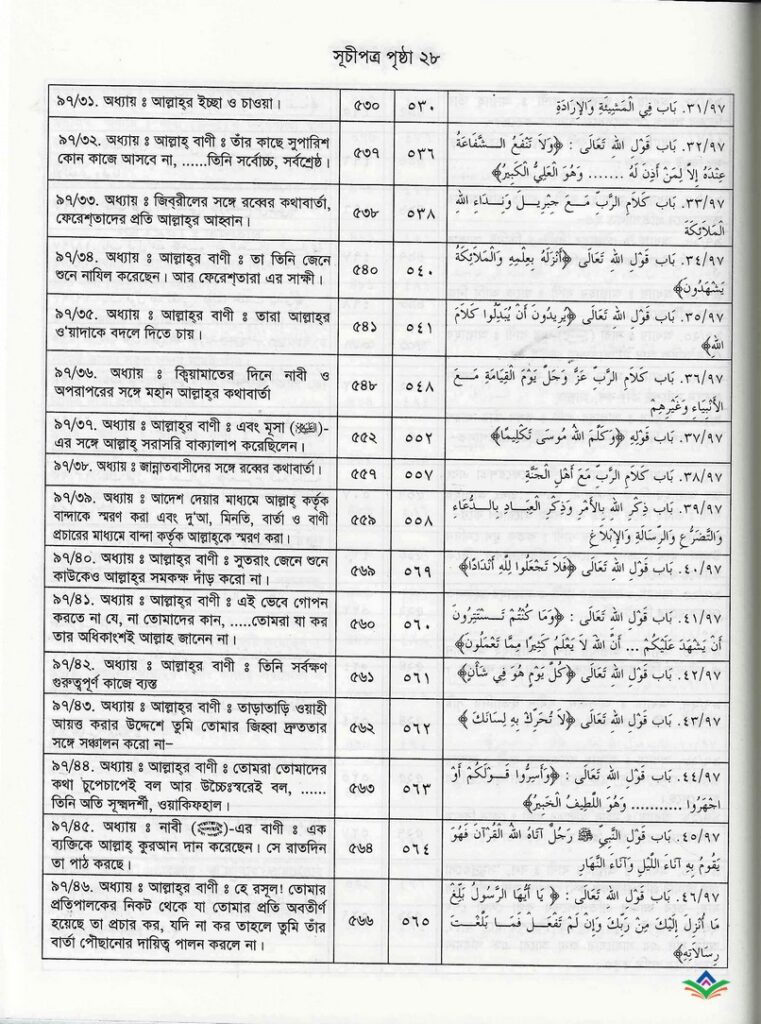 সূচীপত্র পৃষ্ঠা ২৮
৯৭/৩১. অধ্যায় ঃ আল্লাহ্‌র ইচ্ছা ও চাওয়া। ৫৩০ ٥٣٠ ٣١/٩٧. بَاب فِي الْمَشِيئَةِ وَالْإِرَادَةِ
৯৭/৩২. অধ্যায় ঃ আল্লাহ্ বাণী ঃ তাঁর কাছে সুপারিশ
কোন কাজে আসবে না, ......তিনি সর্বোচ্চ, সর্বশ্রেষ্ঠ।
৫৩৭ ٥٣٦
٣٢/٩٧. بَاب قَوْلِ اللهِ تَعَالَى : ﴿وَلَا تَنْفَعُ الشَّفَاعَةُ
عِنْدَهُ إِلَّا لِمَنْ أَذِنَ لَهُ ....... وَهُوَ الْعَلِيُّ الْكَبِيرُ﴾
৯৭/৩৩. অধ্যায় ঃ জিব্‌রীলের সঙ্গে রব্বের কথাবার্তা,
ফেরেশ্‌তাদের প্রতি আল্লাহ্‌র আহ্বান।
৫৩৮ ٥٣٨
٣٣/٩٧. بَاب كَلَامِ الرَّبِّ مَعَ جِبْرِيلَ وَنِدَاءِ اللهِ
الْمَلَائِكَةَ
৯৭/৩৪. অধ্যায় ঃ আল্লাহ্‌র বাণী ঃ তা তিনি জেনে
শুনে নাযিল করেছেন। আর ফেরেশ্‌তারা এর সাক্ষী।
৫৪০ ٥٤٠
٣٤/٩٧. بَاب قَوْلِ اللهِ تَعَالَى ﴿أَنْزَلَهُ بِعِلْمِهِ وَالْمَلَائِكَةُ
يَشْهَدُونَ﴾
৯৭/৩৫. অধ্যায় ঃ আল্লাহ্‌র বাণী ঃ তারা আল্লাহ্‌র
ও'য়াদাকে বদলে দিতে চায়।
৫৪১ ٥٤١
٣٥/٩٧. بَاب قَوْلِ اللهِ تَعَالَى ﴿يُرِيدُونَ أَنْ يُبَدِّلُوا كَلَامَ
اللهِ﴾
৯৭/৩৬. অধ্যায় ঃ ক্বিয়ামাতের দিনে নাবী ও
অপরাপরের সঙ্গে মহান আল্লাহ্‌র কথাবার্তা
৫৪৮ ٥٤٨
٣٦/٩٧. بَاب كَلَامِ الرَّبِّ عَزَّ وَجَلَّ يَوْمَ الْقِيَامَةِ مَعَ
الْأَنْبِيَاءِ وَغَيْرِهِمْ
৯৭/৩৭. অধ্যায় ঃ আল্লাহ্‌র বাণী ঃ এবং মূসা (عليه السلام)-
এর সঙ্গে আল্লাহ্ সরাসরি বাক্যালাপ করেছিলেন।
৫৫২ ٥٥٢
٣٧/٩٧. بَاب قَوْلِهِ ﴿وَكَلَّمَ اللهُ مُوسَى تَكْلِيمًا﴾
৯৭/৩৮. অধ্যায় ঃ জান্নাতবাসীদের সঙ্গে রব্বের কথাবার্তা। ৫৫৭ ٥٥٧ ٣٨/٩٧. بَاب كَلَامِ الرَّبِّ مَعَ أَهْلِ الْجَنَّةِ
৯৭/৩৯. অধ্যায় ঃ আদেশ দেয়ার মাধ্যমে আল্লাহ্ কর্তৃক
বান্দাকে স্মরণ করা এবং দু'আ, মিনতি, বার্তা ও বাণী
প্রচারের মাধ্যমে বান্দা কর্তৃক আল্লাহ্‌কে স্মরণ করা।
৫৫৯ ٥٥٨
٣٩/٩٧. بَاب ذِكْرِ اللهِ بِالْأَمْرِ وَذِكْرِ الْعِبَادِ بِالدُّعَاءِ
وَالتَّضَرُّعِ وَالرِّسَالَةِ وَالْإِبْلَاغِ
৯৭/৪০. অধ্যায় ঃ আল্লাহ্‌র বাণী ঃ সুতরাং জেনে শুনে
কাউকেও আল্লাহ্‌র সমকক্ষ দাঁড় করো না।
৫৬৯ ٥٦٩
٤٠/٩٧. بَاب قَوْلِ اللهِ تَعَالَى ﴿فَلَا تَجْعَلُوا لِلَّهِ أَنْدَادًا﴾
৯৭/৪১. অধ্যায় ঃ আল্লাহ্‌র বাণী ঃ এই ভেবে গোপন
করতে না যে, না তোমাদের কান, .....তোমরা যা কর
তার অধিকাংশই আল্লাহ জানেন না।
৫৬০ ٥٦٠
٤١/٩٧. بَاب قَوْلِ اللهِ تَعَالَى : ﴿وَمَا كُنْتُمْ تَسْتَتِرُونَ
أَنْ يَشْهَدَ عَلَيْكُمْ ... أَنَّ اللهَ لَا يَعْلَمُ كَثِيرًا مِمَّا تَعْمَلُونَ﴾
৯৭/৪২. অধ্যায় ঃ আল্লাহ্‌র বাণী ঃ তিনি সর্বক্ষণ
গুরুত্বপূর্ণ কাজে ব্যস্ত
৫৬১ ٥٦١
٤٢/٩٧. بَاب قَوْلِ اللهِ تَعَالَى ﴿كُلَّ يَوْمٍ هُوَ فِي شَأْنٍ﴾
৯৭/৪৩. অধ্যায় ঃ আল্লাহ্‌র বাণী ঃ তাড়াতাড়ি ওয়াহী
আয়ত্ত করার উদ্দেশে তুমি তোমার জিহ্বা দ্রুততার
সঙ্গে সঞ্চালন করো না–
৫৬২ ٥٦٢
٤٣/٩٧. بَاب قَوْلِ اللهِ تَعَالَى ﴿لَا تُحَرِّكْ بِهِ لِسَانَكَ﴾
৯৭/৪৪. অধ্যায় ঃ আল্লাহ্‌র বাণী ঃ তোমরা তোমাদের
কথা চুপেচাপেই বল আর উচ্চৈঃস্বরেই বল, ......
তিনি অতি সূক্ষ্মদর্শী, ওয়াকিফহাল।
৫৬৩ ٥٦٣
٤٤/٩٧. بَاب قَوْلِ اللهِ تَعَالَى : ﴿وَأَسِرُّوا قَوْلَكُمْ أَوْ
اجْهَرُوا ........... وَهُوَ اللَّطِيفُ الْخَبِيرُ﴾
৯৭/৪৫. অধ্যায় ঃ নাবী (ﷺ)-এর বাণী ঃ এক
ব্যক্তিকে আল্লাহ্ কুরআন দান করেছেন। সে রাতদিন
তা পাঠ করছে।
৫৬৪ ٥٦٤
٤٥/٩٧. بَاب قَوْلِ النَّبِيِّ ﷺ رَجُلٌ آتَاهُ اللهُ الْقُرْآنَ فَهُوَ
يَقُومُ بِهِ آنَاءَ اللَّيْلِ وَآنَاءَ النَّهَارِ
৯৭/৪৬. অধ্যায় ঃ আল্লাহ্‌র বাণী ঃ হে রসূল! তোমার
প্রতিপালকের নিকট থেকে যা তোমার প্রতি অবতীর্ণ
হয়েছে তা প্রচার কর, যদি না কর তাহলে তুমি তাঁর
বার্তা পৌছানোর দায়িত্ব পালন করলে না।
৫৬৬ ٥٦٥
٤٦/٩٧. بَاب قَوْلِ اللهِ تَعَالَى : ﴿ يَا أَيُّهَا الرَّسُولُ بَلِّغْ
مَا أُنْزِلَ إِلَيْكَ مِنْ رَبِّكَ وَإِنْ لَمْ تَفْعَلْ فَمَا بَلَّغْتَ
رِسَالَاتِهِ﴾